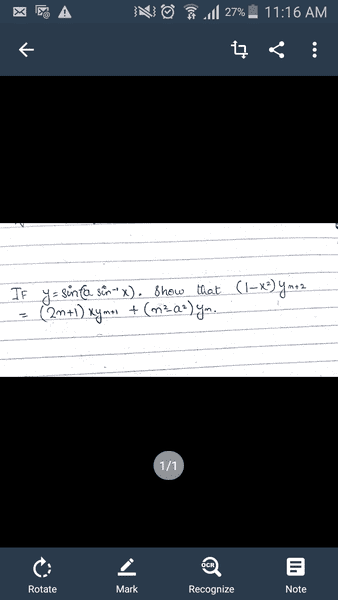 27% 11:16 AM
IF y = sin(a sin⁻¹ x). Show that (1-x²) yₙ₊₂
= (2n+1) xyₙ₊₁ + (n²-a²) yₙ.
1/1
OCR
Rotate Mark Recognize Note